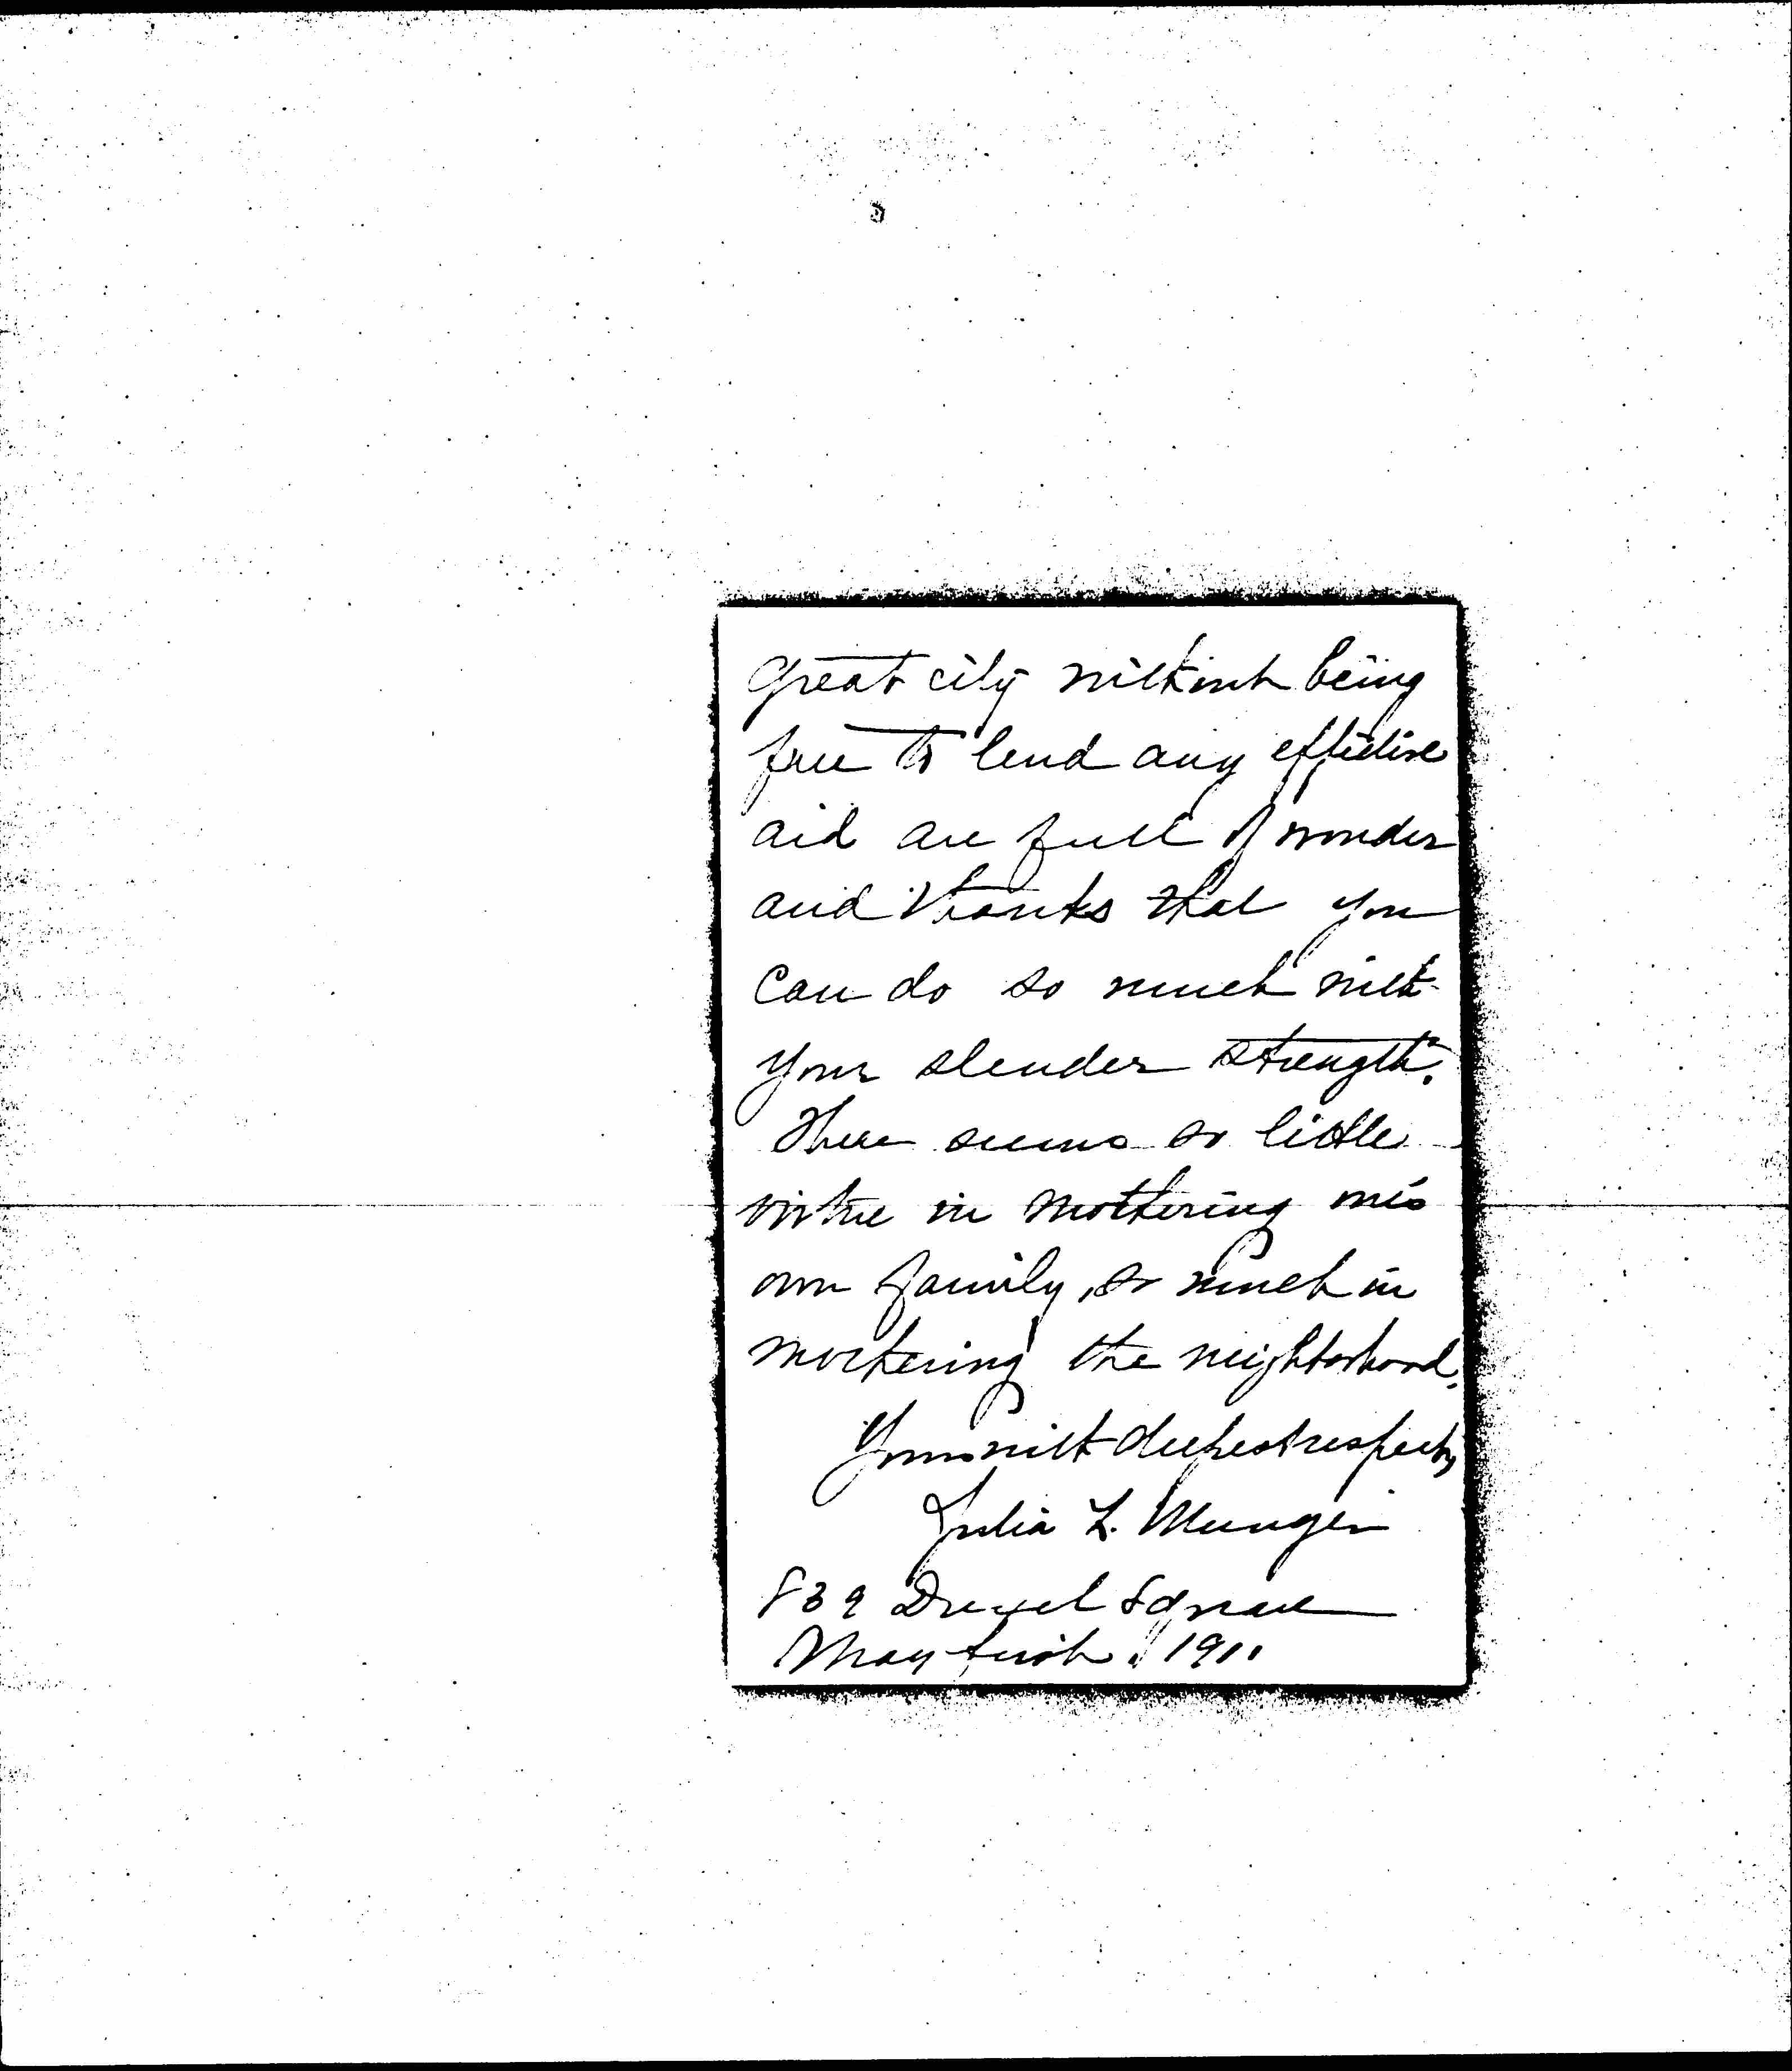 Great city without being
free to lend any effective
aid are full of wonder
and thanks that you
can do so much with
your slender strength.
There seems so little
virtue in mothering one's
own family, so much in
mothering the neighborhood.
Yours with deepest respect,
Julia L. Munger
839 Drexel Square
May first, 1911